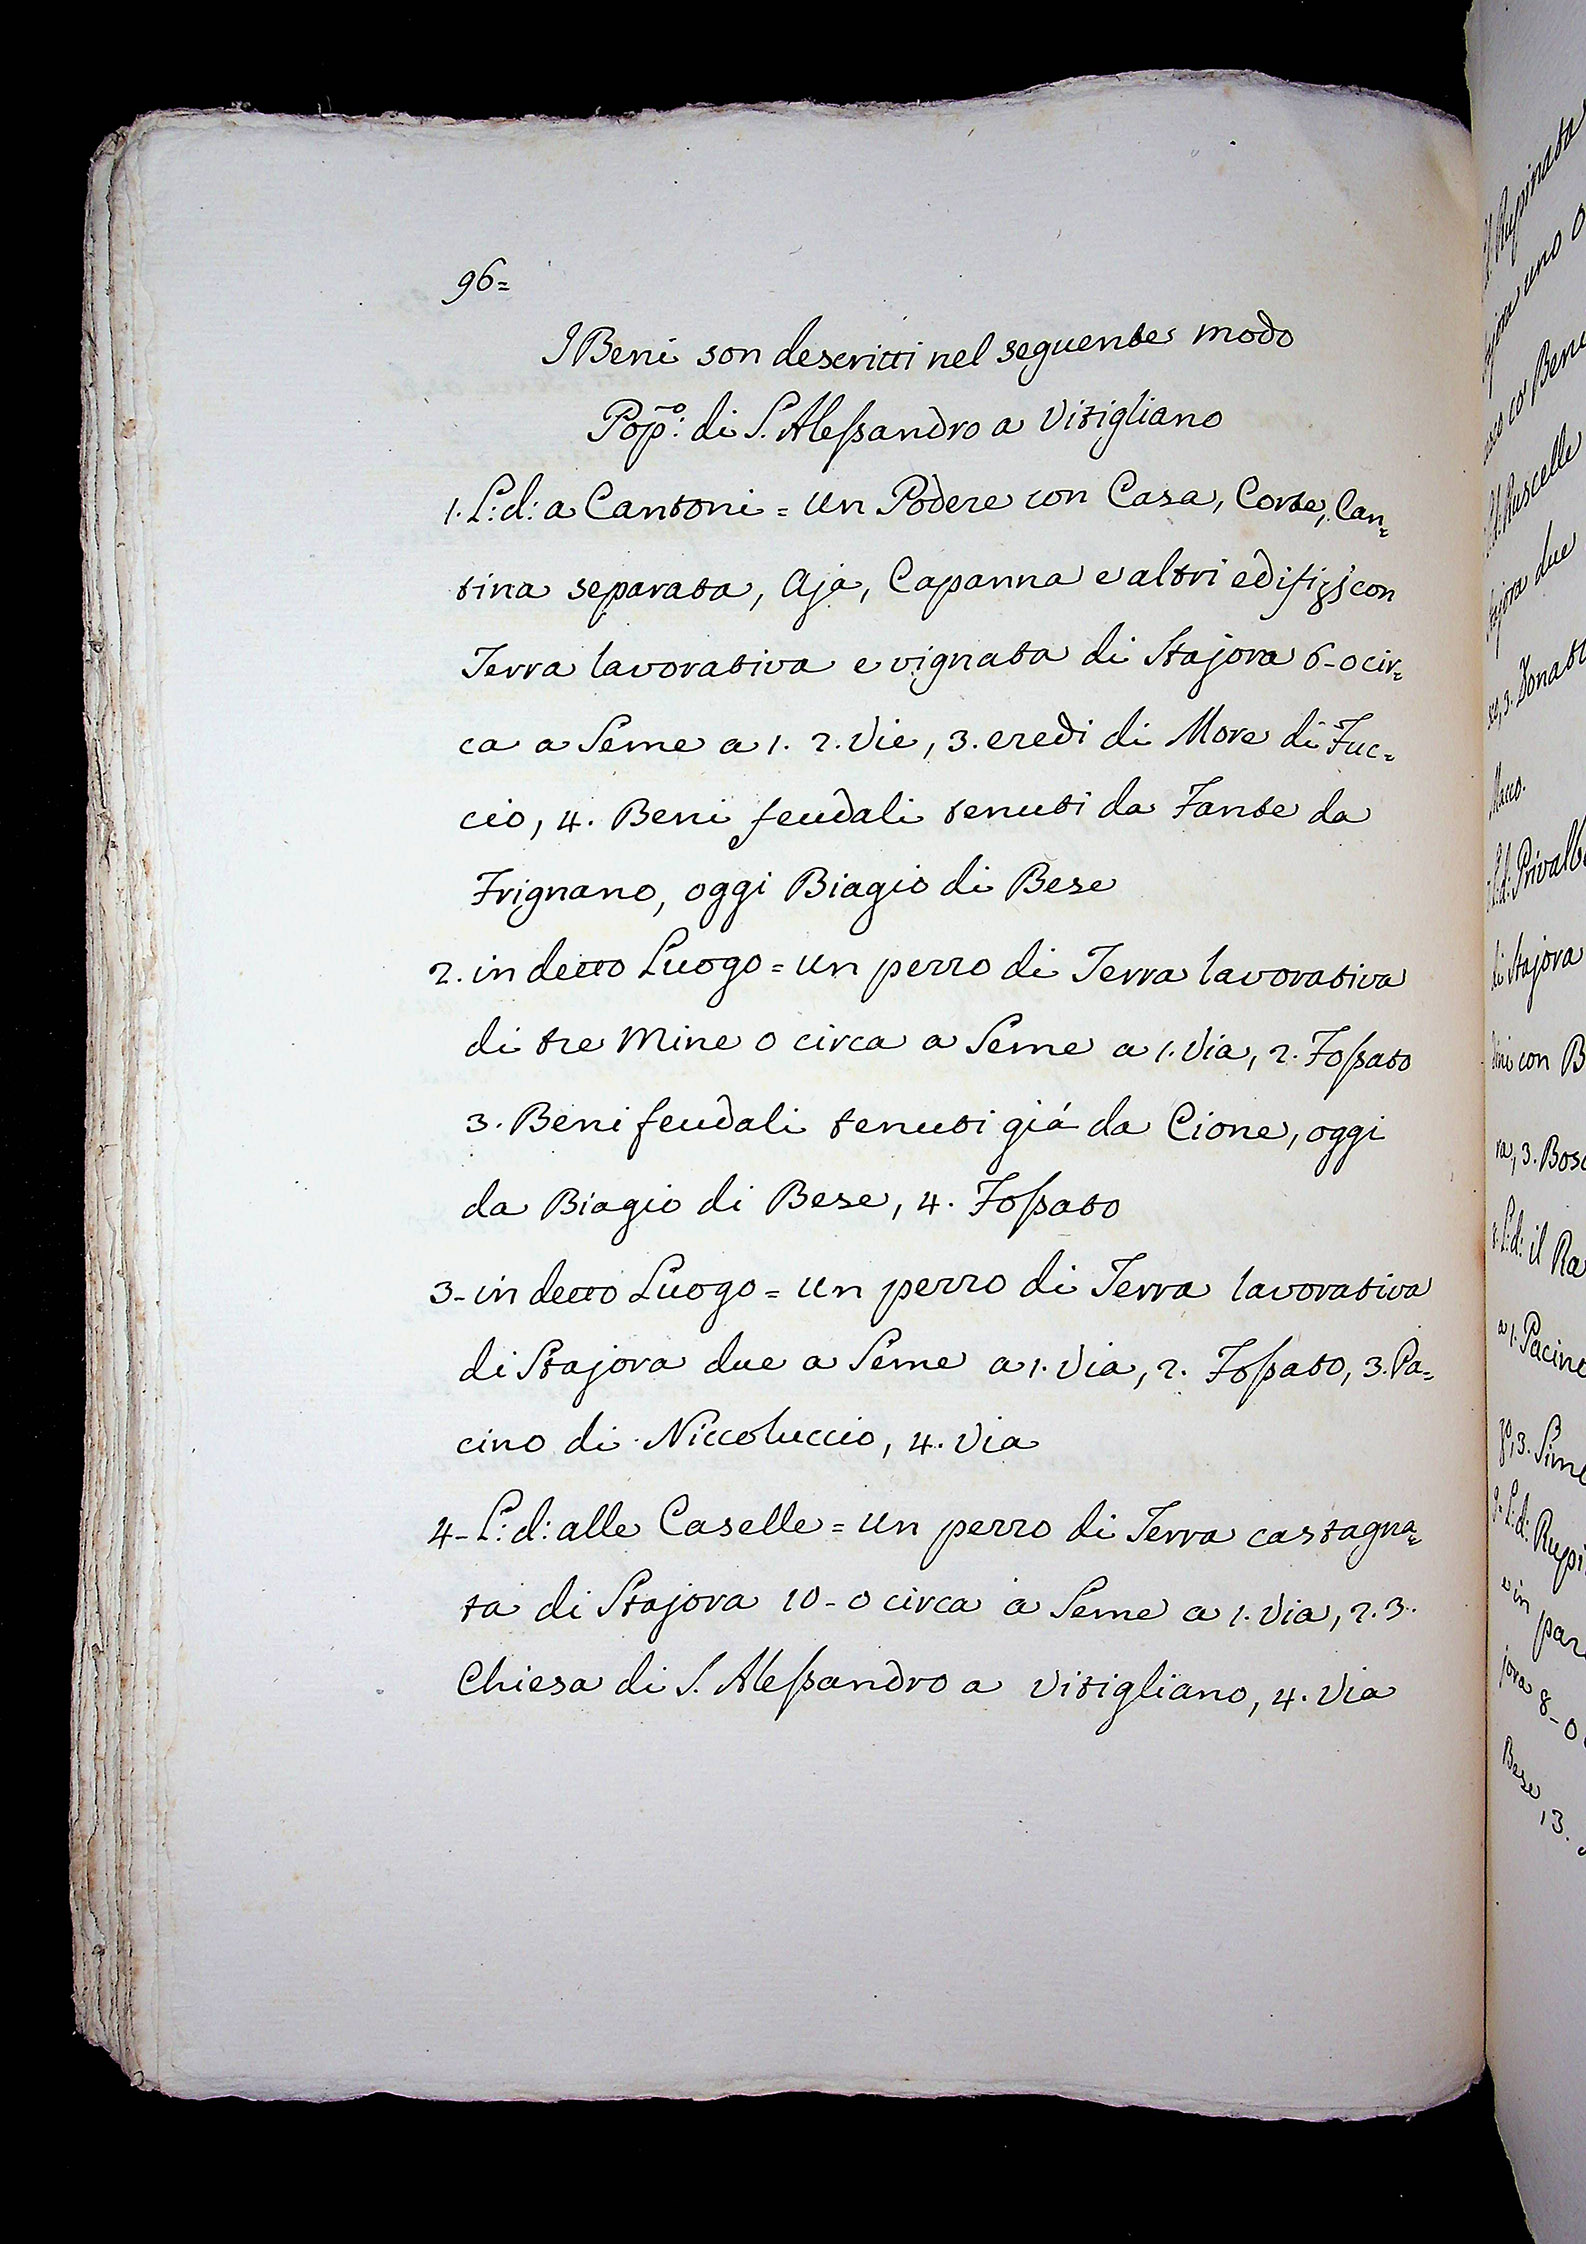 96=
I Beni son descritti nel seguente modo
Pop̄:º di S. Alessandro a Vitigliano
1. L: d: a Cantoni = un Podere con Casa, Corte, Can=
tina separata, Aja, Capanna e altri edifizj con
Terra lavorativa e vignata di Stajora 6 - o cir=
ca a Seme a 1. 2. Vie, 3. eredi di More di Fuc=
cio, 4. Beni feudali tenuti da Fante da
Frignano, oggi Biagio di Bese
2. in detto Luogo = un pezzo di Terra lavorativa
di tre Mine o circa a Seme a 1. Via, 2. Fossato
3. Beni feudali tenuti giá da Cione, oggi
da Biagio di Bese, 4. Fossato
3 - in detto Luogo = un pezzo di Terra lavorativa
di Stajora due a Seme a 1. Via, 2. Fossato, 3. Pa=
cino di Niccoluccio, 4. Via
4 - L: d: alle Caselle = un pezzo di Terra castagna=
ta di Stajora 10 - o circa a Seme a 1. Via, 2. 3.
Chiesa di S. Alessandro a Vitigliano, 4. Via
Rupinata
uno o
co Beni
Ruscelle
due
3. Donato
Macco.
L: d:
di Stajora
con B
3. Bosc
L: d: il Ra
a 1. Pacino
3. Sime
L: d: Rupi
e in par
jora 8 - o
Bese 13.